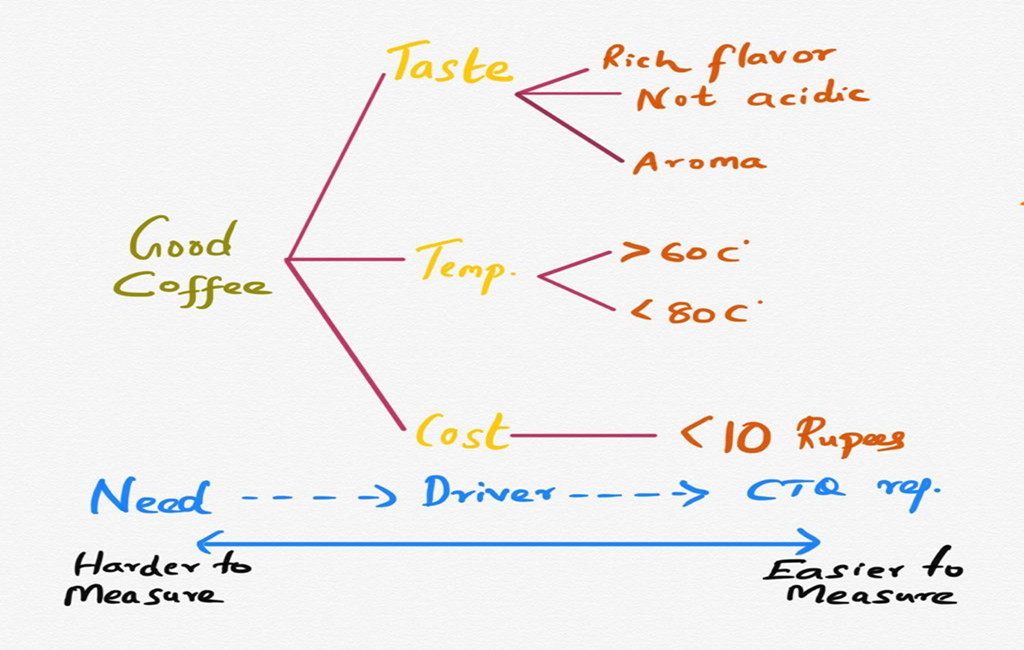 Taste
Rich flavor
Not acidic
Aroma
Good
Coffee
Temp.
> 60 C°
< 80 C°
Cost
< 10 Rupees
Need ----> Driver ----> CTQ rep.
Harder to
Measure
Easier to
Measure